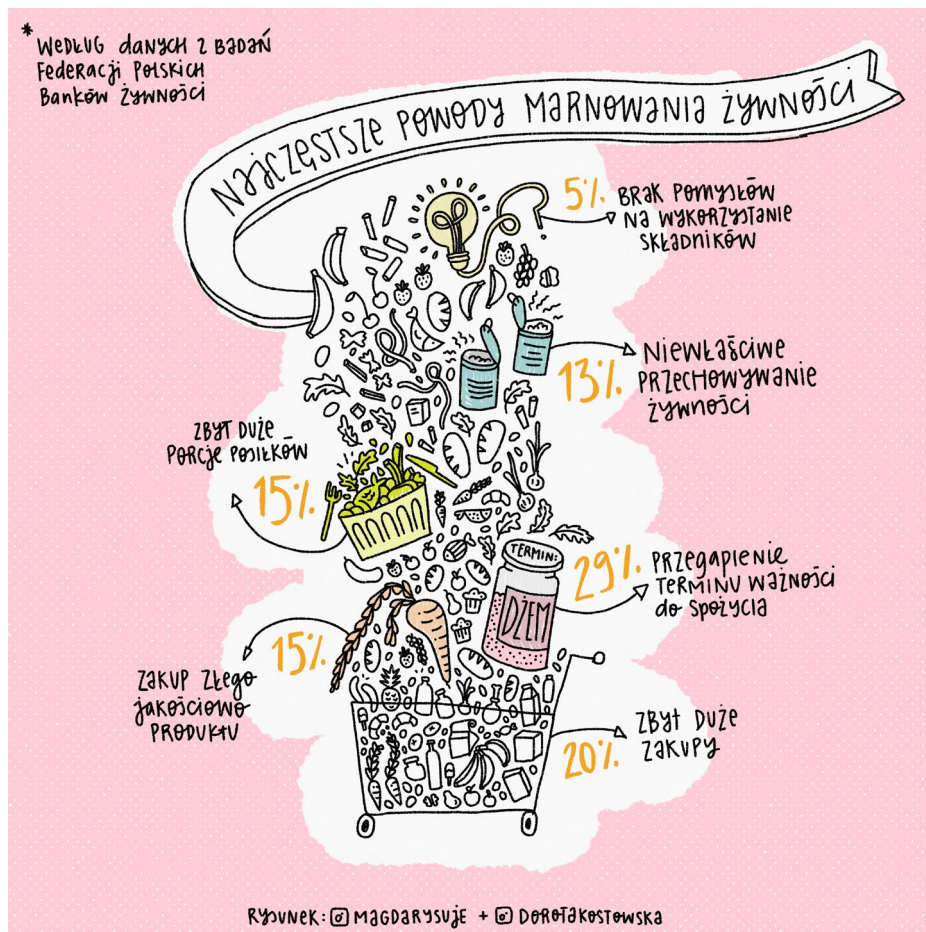 * WEDŁUG DANYCH Z BADAŃ
FEDERACJI POLSKICH
BANKÓW ŻYWNOŚCI
NAJCZĘSTSZE POWODY MARNOWANIA ŻYWNOŚCI
5% BRAK POMYSŁÓW
NA WYKORZYSTANIE
SKŁADNIKÓW
13% NIEWŁAŚCIWE
PRZECHOWYWANIE
ŻYWNOŚCI
ZBYT DUŻE
PORCJE POSIŁKÓW
15%
TERMIN:
DŻEM
29% PRZEGAPIENIE
TERMINU WAŻNOŚCI
do SPOŻYCIA
15%
ZAKUP ZŁEGO
JAKOŚCIOWO
PRODUKTU
20% ZBYT DUŻE
ZAKUPY
RYSUNEK: MAGDARYSUJE + DOROTAKOSTOWSKA